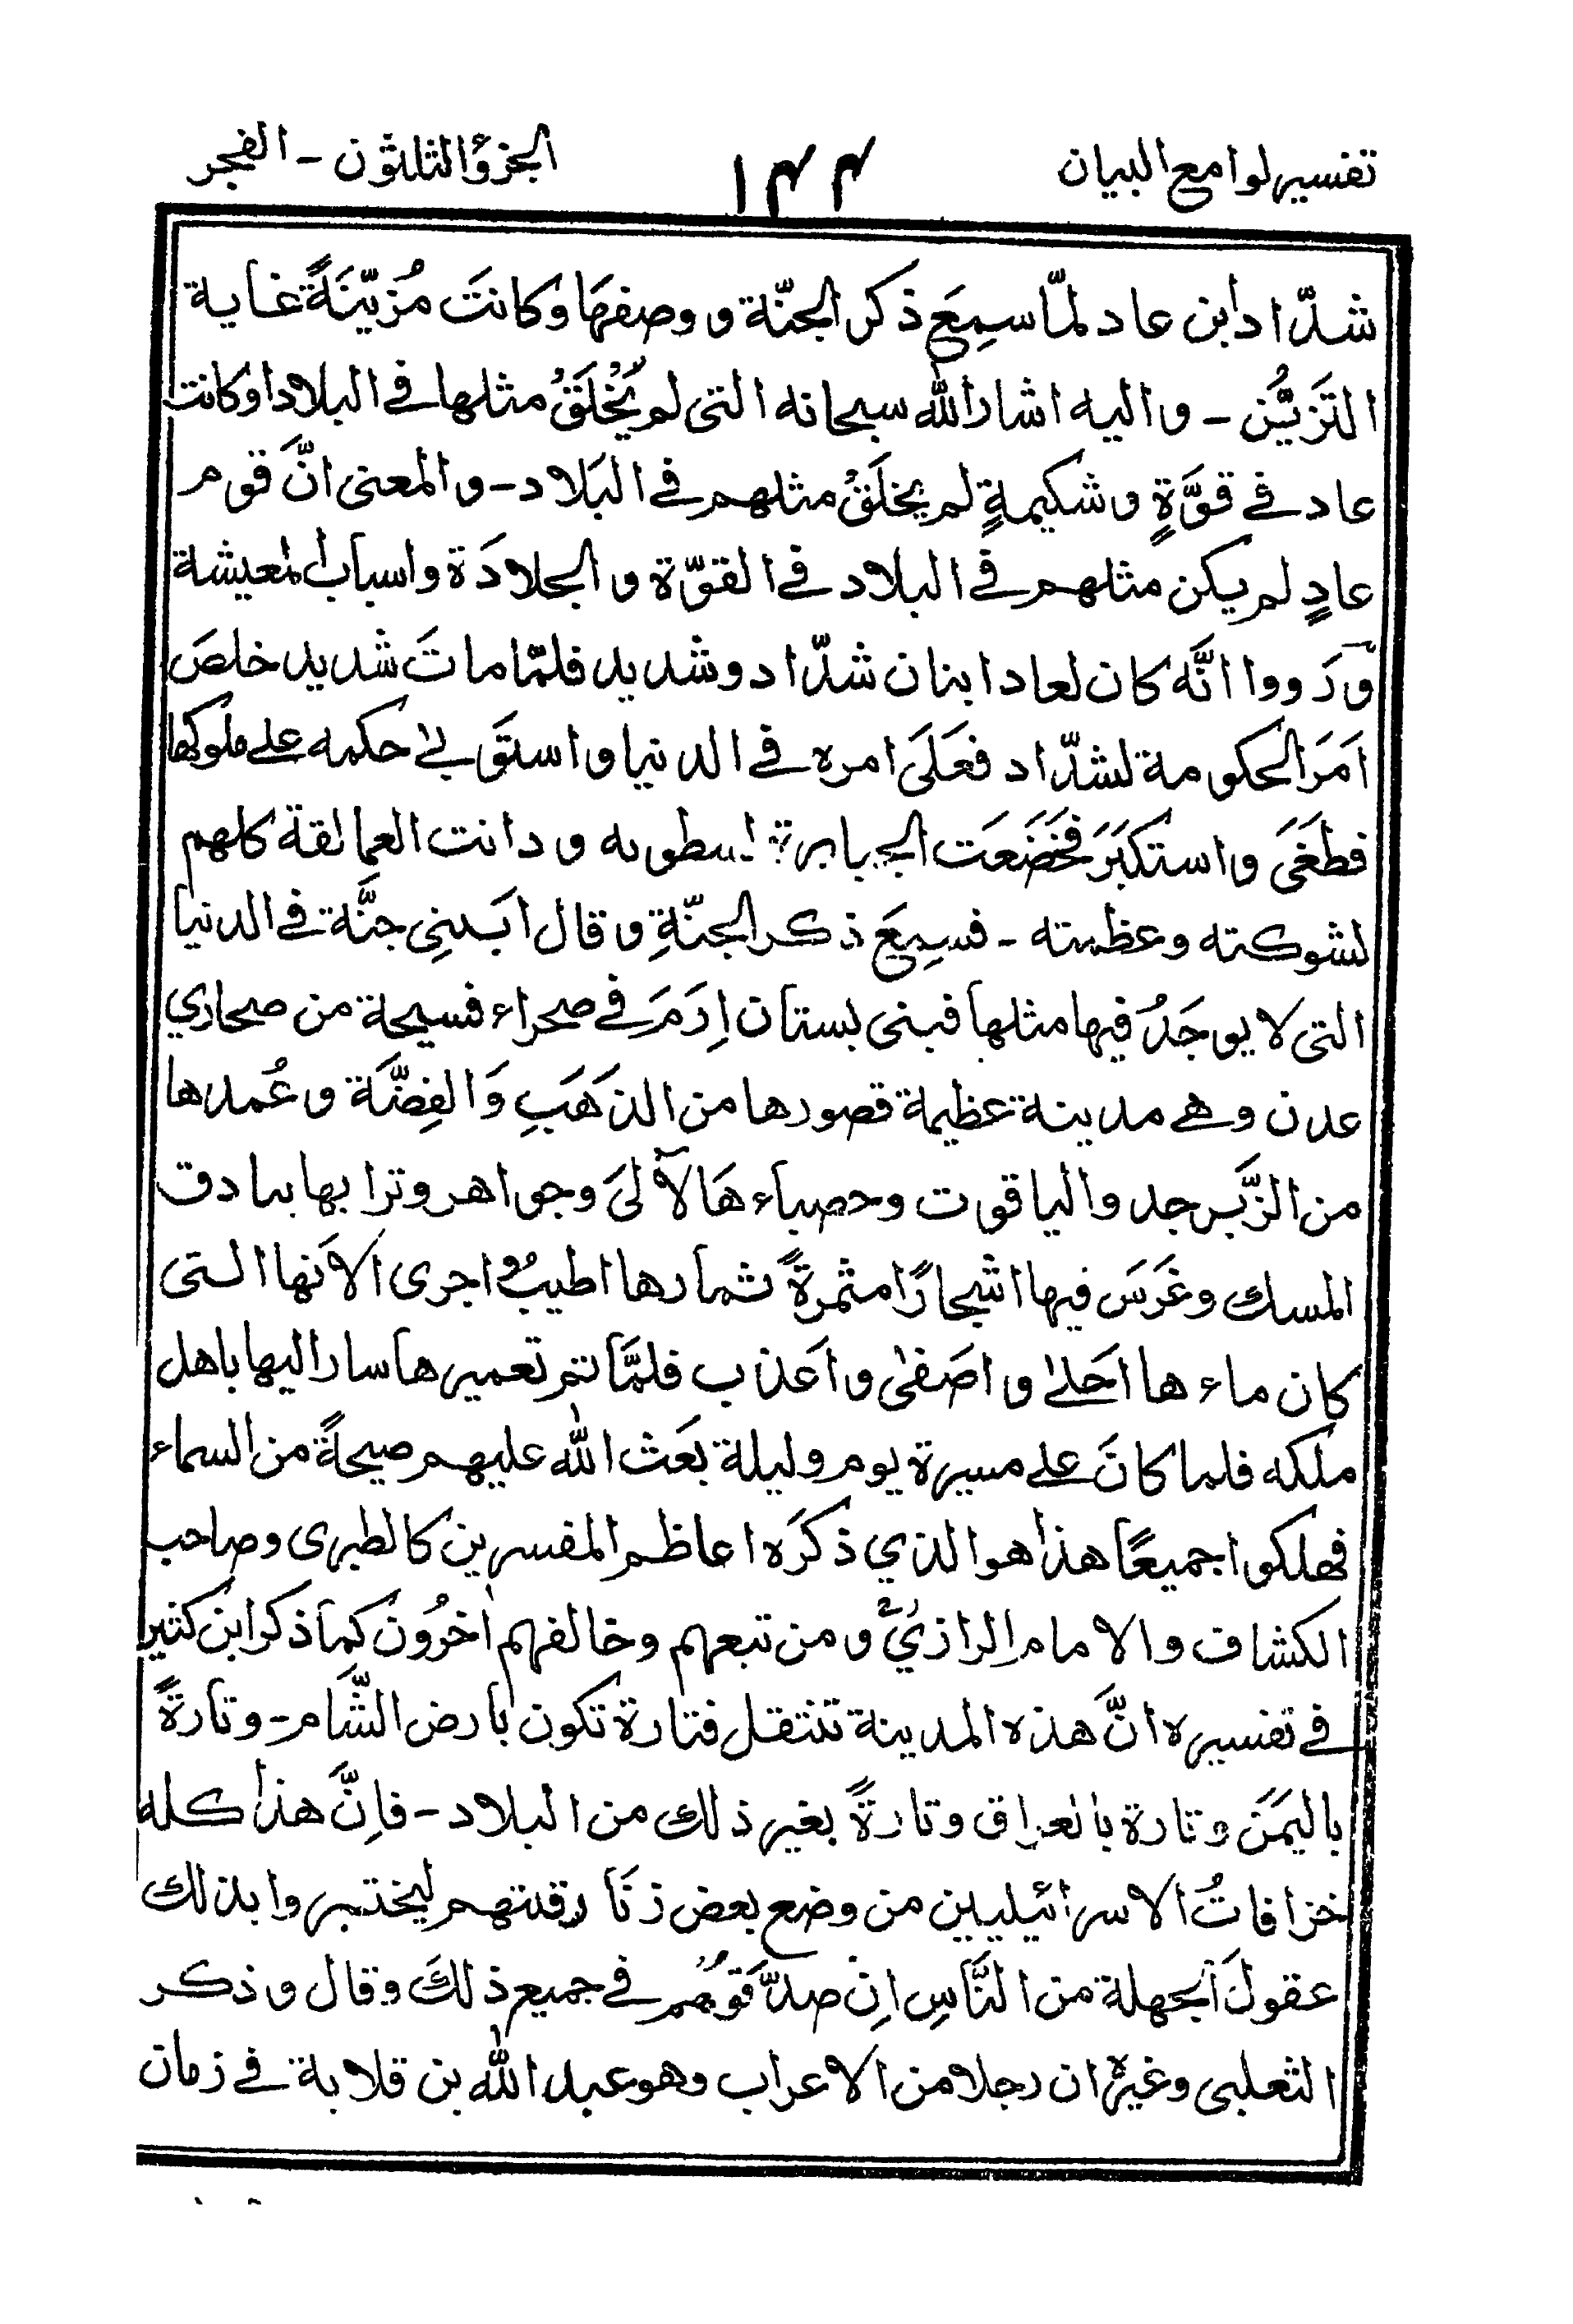 تفسير لوامع البيان ١٤٤ الجزؤ الثلثون - الفجر
شدّاد ابن عاد لمّا سمِعَ ذكر الجنّة و وصفهَا وكانتَ مُزيّنَةً غاية
التَزيُّن - و اليه اشار الله سبحانه التى لم يُخْلَقُ مثلها فى البلاد او كانت
عاد فى قوَّةٍ و شكيمةٍ لم يخلَقُ مثلهم فى البَلاد - و المعنى انَّ قوم
عادٍ لم يكن مثلهم فى البلاد فى القوّة و الجلادَة و اسباب المعيشة
ورَووا انَّه كان لعاد ابنان شدّاد و شديد فلمّا ماتَ شديد خلصَ
اَمَر الحكومة لشدّاد فعَلَى امره فى الدنيا و استَولى حكمه على ملوكها
فطَغَى و استكبَرَ فخَضَعَت الجبابرة لسطوته و دانت العمالقة كلهم
لشوكته وعظمته - فسمِعَ ذكر الجنّةِ و قال ابَنِى جنَّة فى الدنيا
التى لا يوجَدُ فيها مثلها فبنى بستان اِرَمَ فى صحراء فسيحة من صحاري
عدن و هى مدينة عظيمة قصورها من الذَهَبِ وَالفِضَّة و عُمدها
من الزَّبرجد والياقوت وحصباءهَا لآلىَ وجواهر وترابها بنادق
المسك وغَرَسَ فيها اشجارًا مثمرةً ثمارها اطيبُ واجرى الاَنها التى
كان ماءها احَلىٰ و اصَفىٰ و اَعذب فلمَّا تم تعميرها سار اليها باهل
ملكه فلما كانَ على مسيرة يوم وليلة بَعَث الله عليهم صيحةً من السماء
فهلكوا جميعًا هذا هو الذي ذكرَه اعاظم المفسرين كالطبرى وصاحب
الكشاف والامام الرازيؒ و من تبعهم وخالفهم اٰخرُون كما ذكر ابن كثير
فى تفسيره انَّ هذه المدينة تنتقل فتارة تكون بارض الشَّام - وتارةً
باليمَن وتارة بالعراق وتارةً بغير ذلك من البلاد - فاِنَّ هذا كله
خرافاتُ الاسرائيليين من وضع بعض زنَا دقتهم ليختبروا بذلك
عقولَ الجهلة من النَّاسِ اِن صدَّقوهُم فى جميع ذلكَ وقال و ذكر
الثعلبى وغيره ان رجلا من الاعراب وهو عبد الله بن قلابة فى زمان